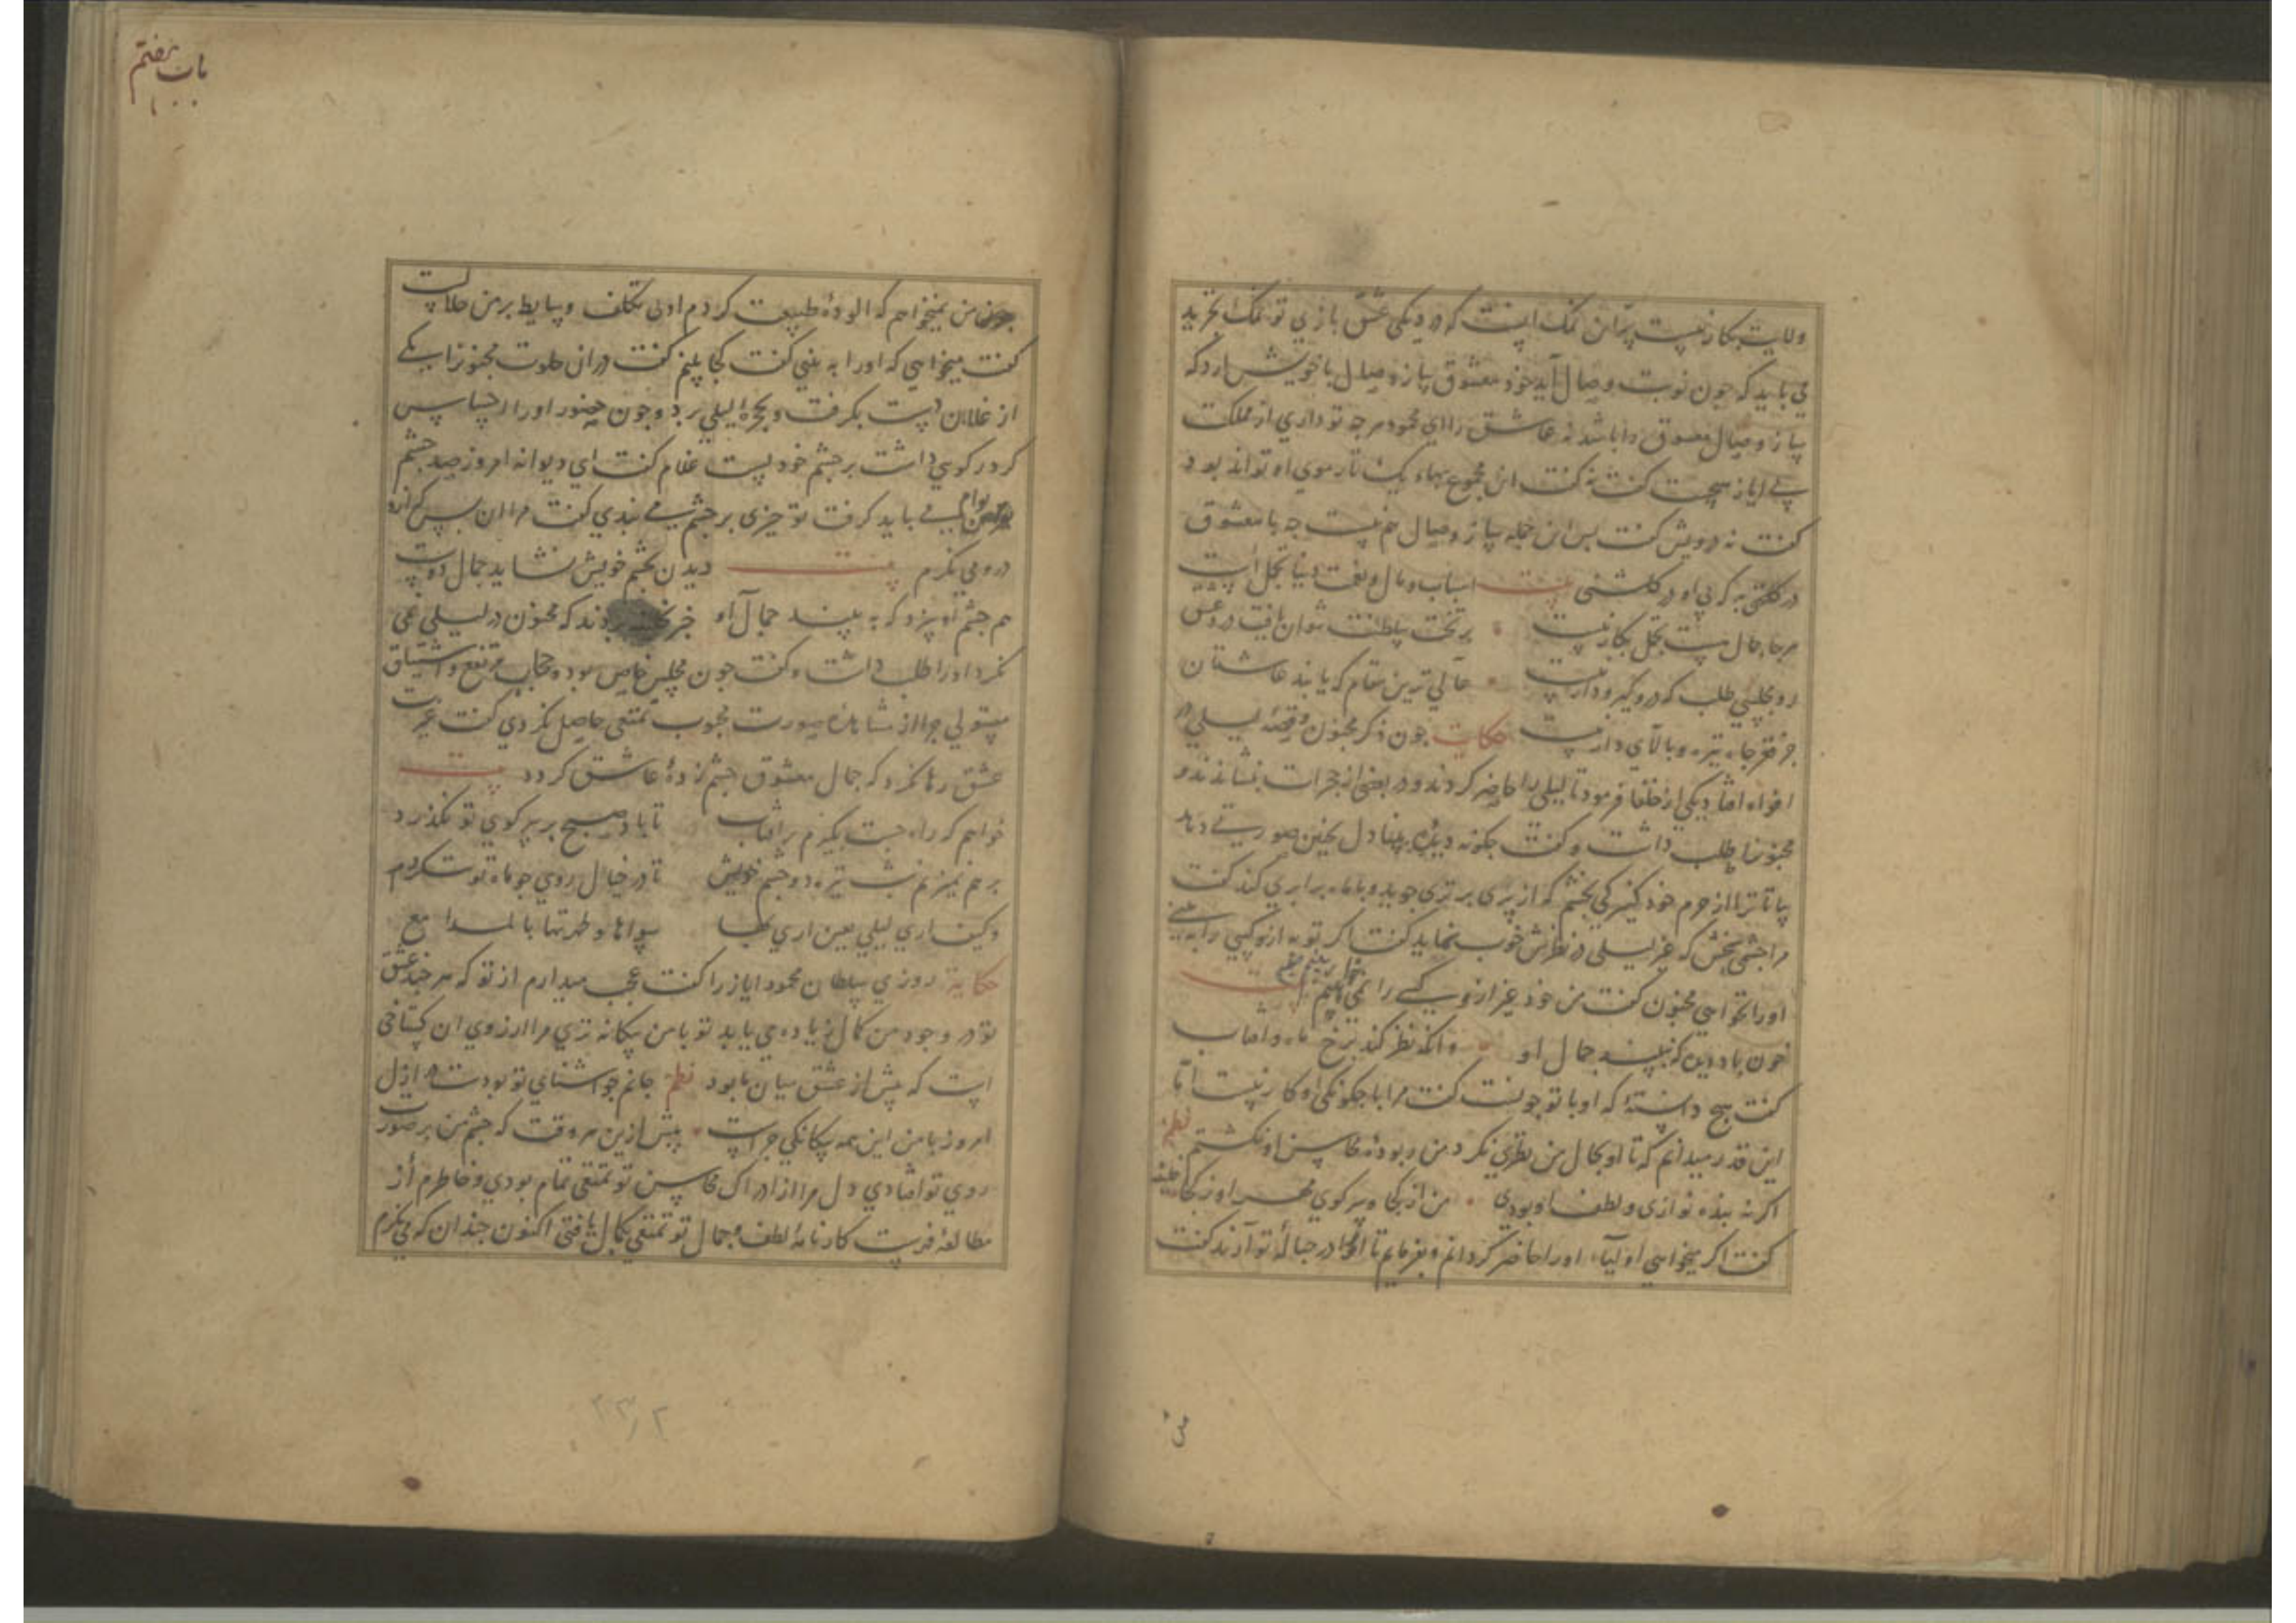 ولایت بکار نیست پر این نمک است که در دیکی عشق بازی تو نمک تجرید
می باید که چون نوبت وصال آید خود معشوق ساز وصال با خویش آرد که
ساز وصال معشوق را باشد نه عاشق را ای محمود هرچه تو داری از مملکت
بی ایاز هیچت کفت نه کفت این مجموع بهاء یک تار موی او تواند بود
کفت نه درویش کفت بس این جمله ساز وصال هم نیست چه با معشوق
در کلخنی به که بی او در کلشنی بیت اسباب و مال و نعمت دنیا تجمل است
هرجا جمال هست تجمل بکار نیست برتخت سلطنت نتوان یافت در وعش
رو مجلسی طلب که درو گیر و دار نیست عالی ترین مقام که یابند عاشقان
جز قعر جاه تیره و بالای دار نیست حکایت چون ذکر مجنون و قصه لیلی در
افواه افتاد یکی از خلفا فرمود تا لیلی را حاضر کردند و در بعضی از حجرات بنشاندند و
مجنون را طلب داشت و کفت چکونه دیده بینا دل بچنین صورتی دهد
بیا تا ترا از حرم خود کنیزکی بخشم که از پری برتری جوید و با ماه برابری کند کفت
مرا چشمی بخش که غیر لیلی در نظرش خوب نماید کفت اکر تو به از و کسی را به بینی
او را نخواهی مجنون کفت من خود غیر از و کسی را نمی بینم
خون باد دیده که نبیند جمال او وانکه نظر کند برخ ماه و آفتاب
کفت هیچ دانسته که او با تو چونست کفت مرا با چکونکی او کار نیست اما
این قدر میدانم که تا او بحال من نظری نکرد من ربوده محاسن او نکشتم نظم
اکر نه بنده نوازی و لطف او بودی من از کجا و سر کوی مهر او ز کجا خلیفه
کفت اکر میخواهی او را حاضر کردانم و بفرمایم تا او را در حباله تو آرند کفت
من
باب هفتم
من نمیخواهم که آلوده طبیعت کردم اولی تکلف وسایط بر من حلالست
کفت میخواهی که او را به بینی کفت کجا بینم کفت در آن خلوت مجنون را یکی
از غلامان دست بکرفت و بحجره لیلی برد و چون حضور او را احساس
کرد رکویی داشت بر چشم خود بست غلام کفت ای دیوانه امروز صد چشم
بوام می باید کرفت تو چیزی بر چشم می بندی کفت مرا آن بس که از دور
درو می نکرم بیت دیدن بچشم خویش نشاید جمال دوست
هم چشم او سزد که به بیند جمال او خبر بردند که مجنون در لیلی می
نکرد او را طلب داشت و کفت چون مجلس خاص بود و حجاب مرتفع و اشتیاق
مستولی چرا از مشاهده صورت محبوب تمتعی حاصل نکردی کفت غیرت
عشق رها نکرد که جمال معشوق چشم زده عاشق کردد بیت
خواهم که راه جست بکیرم بر آفتاب تا باد صبح بر سر کوی تو نکذرد
برهم نمیزنم شب تیره دو چشم خویش تا در خیال روی چو ماه تو نکرم
وکیف اری لیلی بعین اری بها سواها و طهرتها بالمدامع
حکایة روزی سلطان محمود ایاز را کفت عجب میدارم از تو که هرچند عشق
تو در وجود من کمال زیاده می یابد تو با من بیکانه تری مرا آرزوی آن کستاخی
است که پیش از عشق میان ما بود نظم جانم چو آشنای تو بودست در ازل
امروز با من این همه بیکانکی چراست پیش ازین هر وقت که چشم من بر صورت
روی تو افتادی دل مرا از ادراک محاسن تو تمتعی تمام بودی و خاطرم از
مطالعه فهرست کارنامه لطف و جمال تو تمتعی بکمال یافتی اکنون چندان که می نکرم